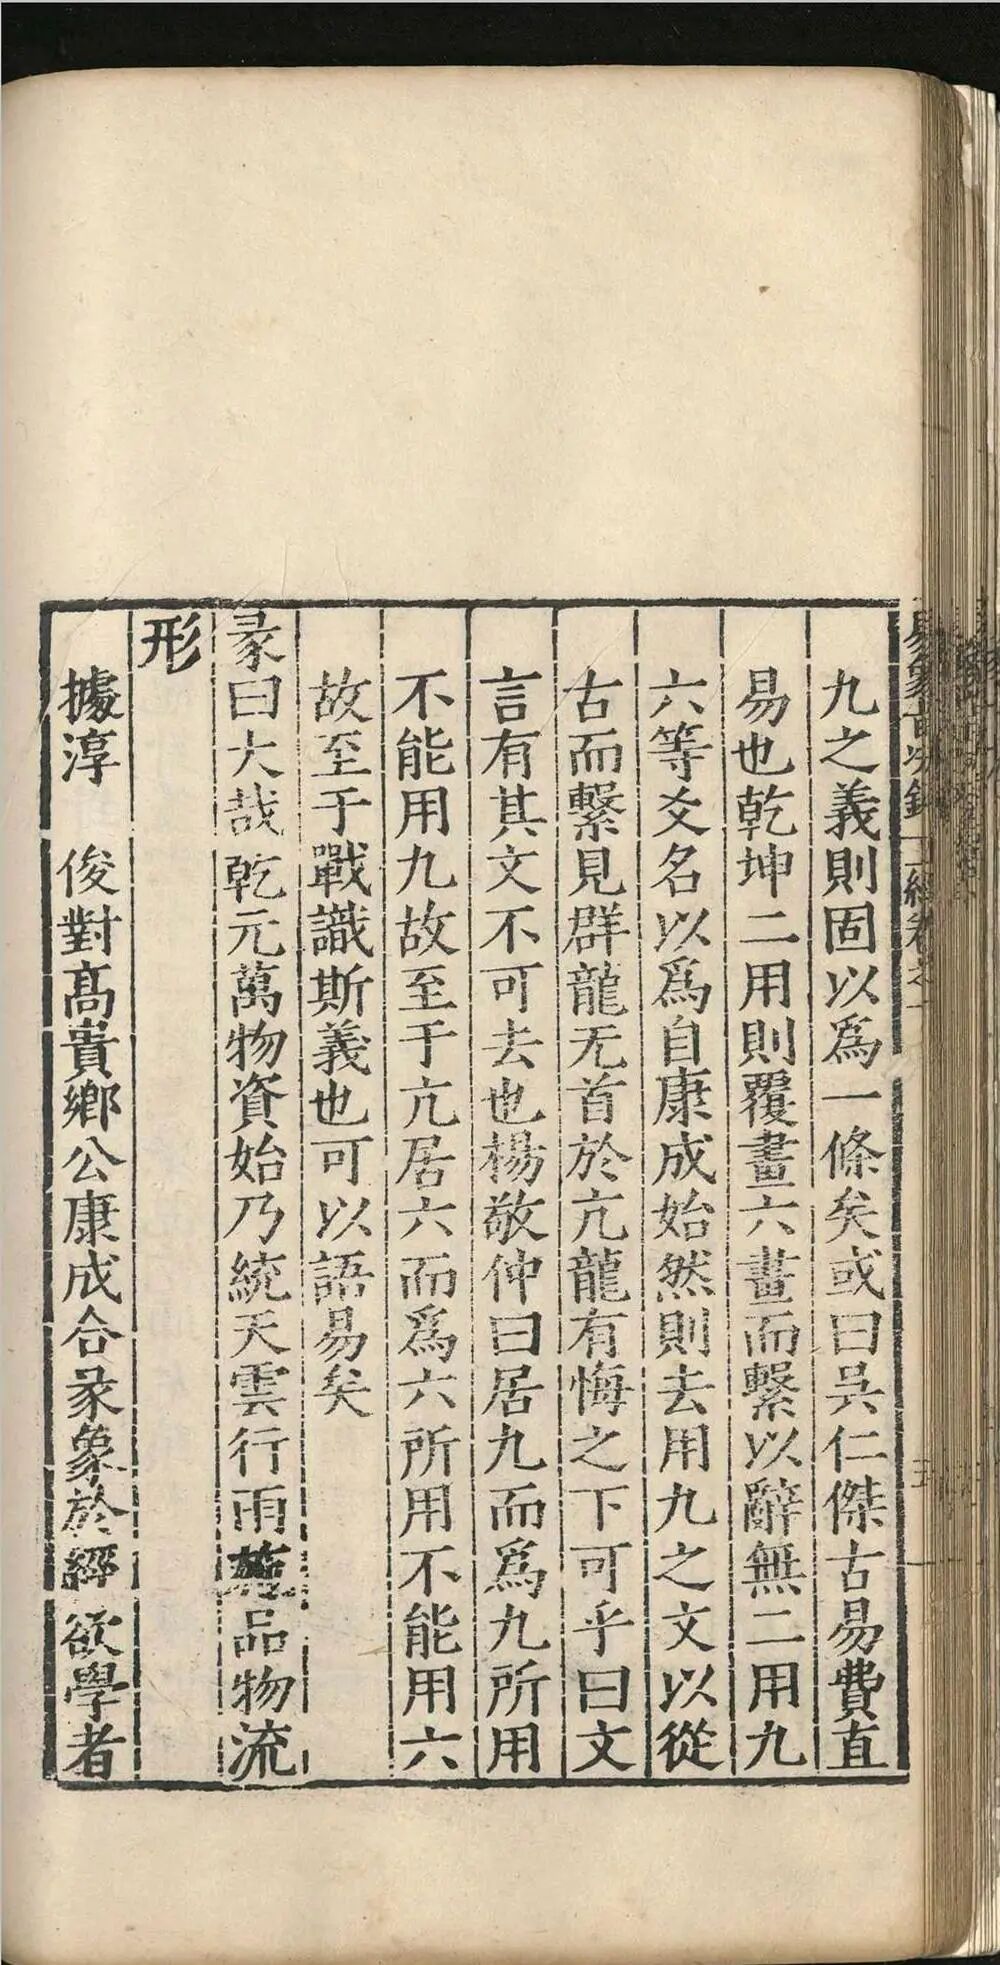 九之義則固以爲一條矣或曰吳仁傑古易費直
易也乾坤二用則覆畫六畫而繫以辭無二用九
六等爻名以爲自康成始然則去用九之文以從
古而繫見群龍无首於亢龍有悔之下可乎曰文
言有其文不可去也楊敬仲曰居九而爲九所用
不能用九故至于亢居六而爲六所用不能用六
故至于戰識斯義也可以語易矣
彖曰大哉乾元萬物資始乃統天雲行雨品物流
形
據淳 俊對高貴鄉公康成合彖象於經欲學者